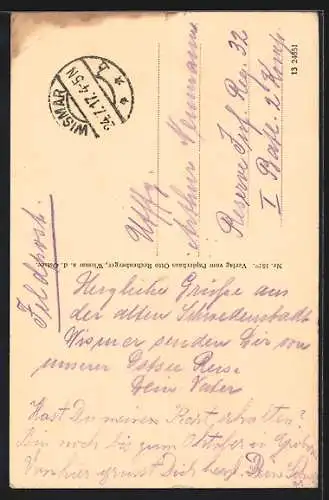 Feldpost.
WISMAR
24.7.17. 4-5 N
* b *
Uffz.
Arthur Neumann
Reserve Inf. Reg. 32
I Batl. 2 Komp.
13 24851
Verlag vom Papierhaus Otto Rechenberger, Wismar a. d. Ostsee.
Herzliche Grüsse aus
der alten Schwedenstadt
Wismar senden Dir von
unserer Ostsee Reise
Dein Vater
Hast Du meinen Karte erhalten?
Bin noch bis zum Oktober in
Von hier grüsst Dich herzl. Dein